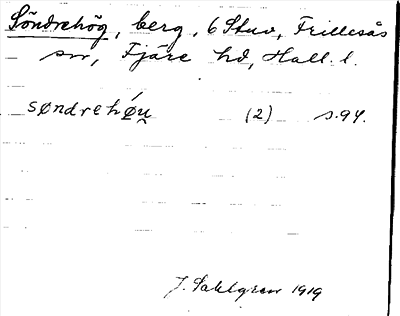 Söndrehög, berg, 6 Stuv, Frillesås
sn, Fjäre hd, Hall. l.
søndrehǿu̯ (2) s. 94.
J. Sahlgren 1919